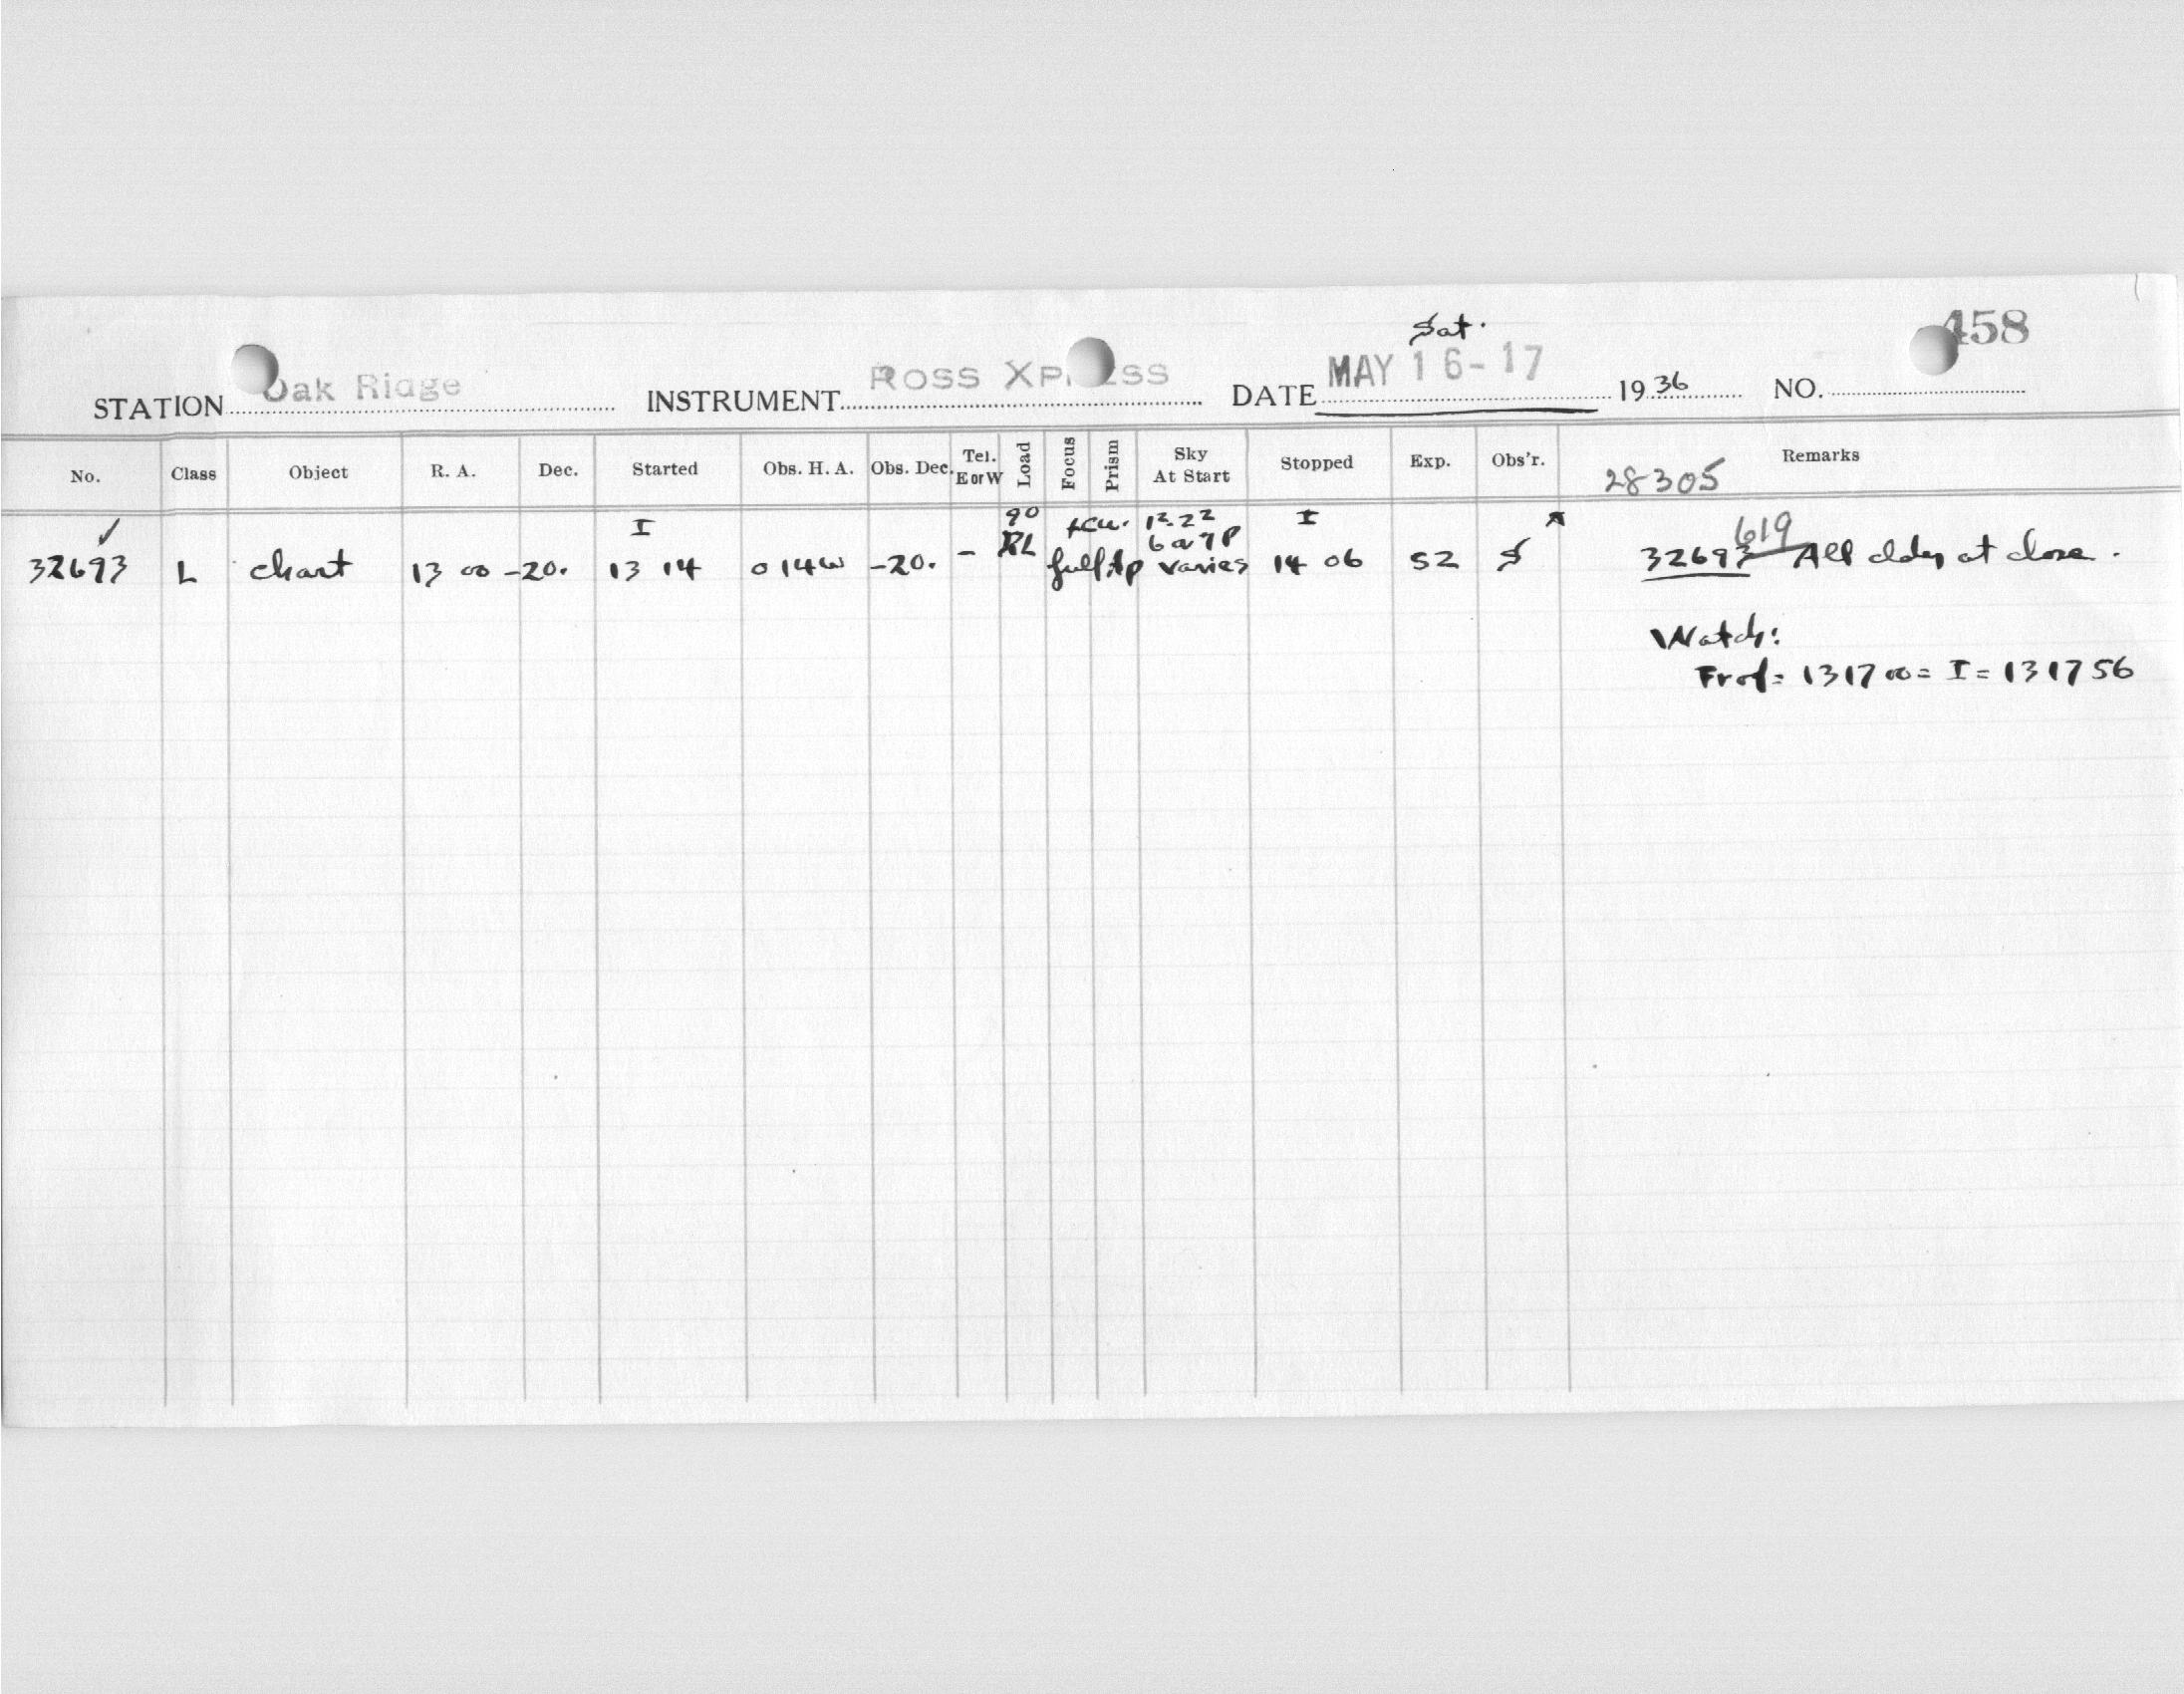 Sat.
458
STATION Oak Ridge INSTRUMENT ROSS XP ESS DATE MAY 16-17 1936 NO.
No. Class Object R. A. Dec. Started Obs. H. A. Obs. Dec. Tel. E or W Load Focus Prism Sky At Start Stopped Exp. Obs'r. Remarks
28305
✓ I 90 12.22 I 619
32693 L chart 13 00 -20. 13 14 0 14 W -20. - RL full Ap varies 14 06 52 S 32693 All cldy at close.
Watch:
Frod= 131700= I= 131756